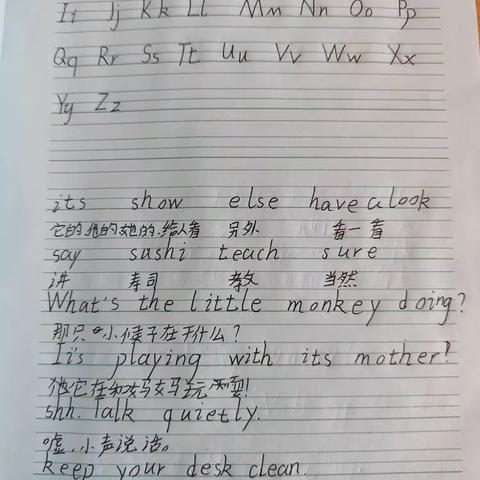 Ii Jj Kk Ll Mm Nn Oo Pp
Qq Rr Ss Tt Uu Vv Ww Xx
Yy Zz
its show else have a look
它的,他的,她的,给人看 另外 看一看
say sushi teach sure
讲 寿司 教 当然
What's the little monkey doing?
那只小猴子在干什么?
It's playing with its mother!
它在和妈妈玩耍!
shh. Talk quietly.
嘘,小声说话。
keep your desk clean.